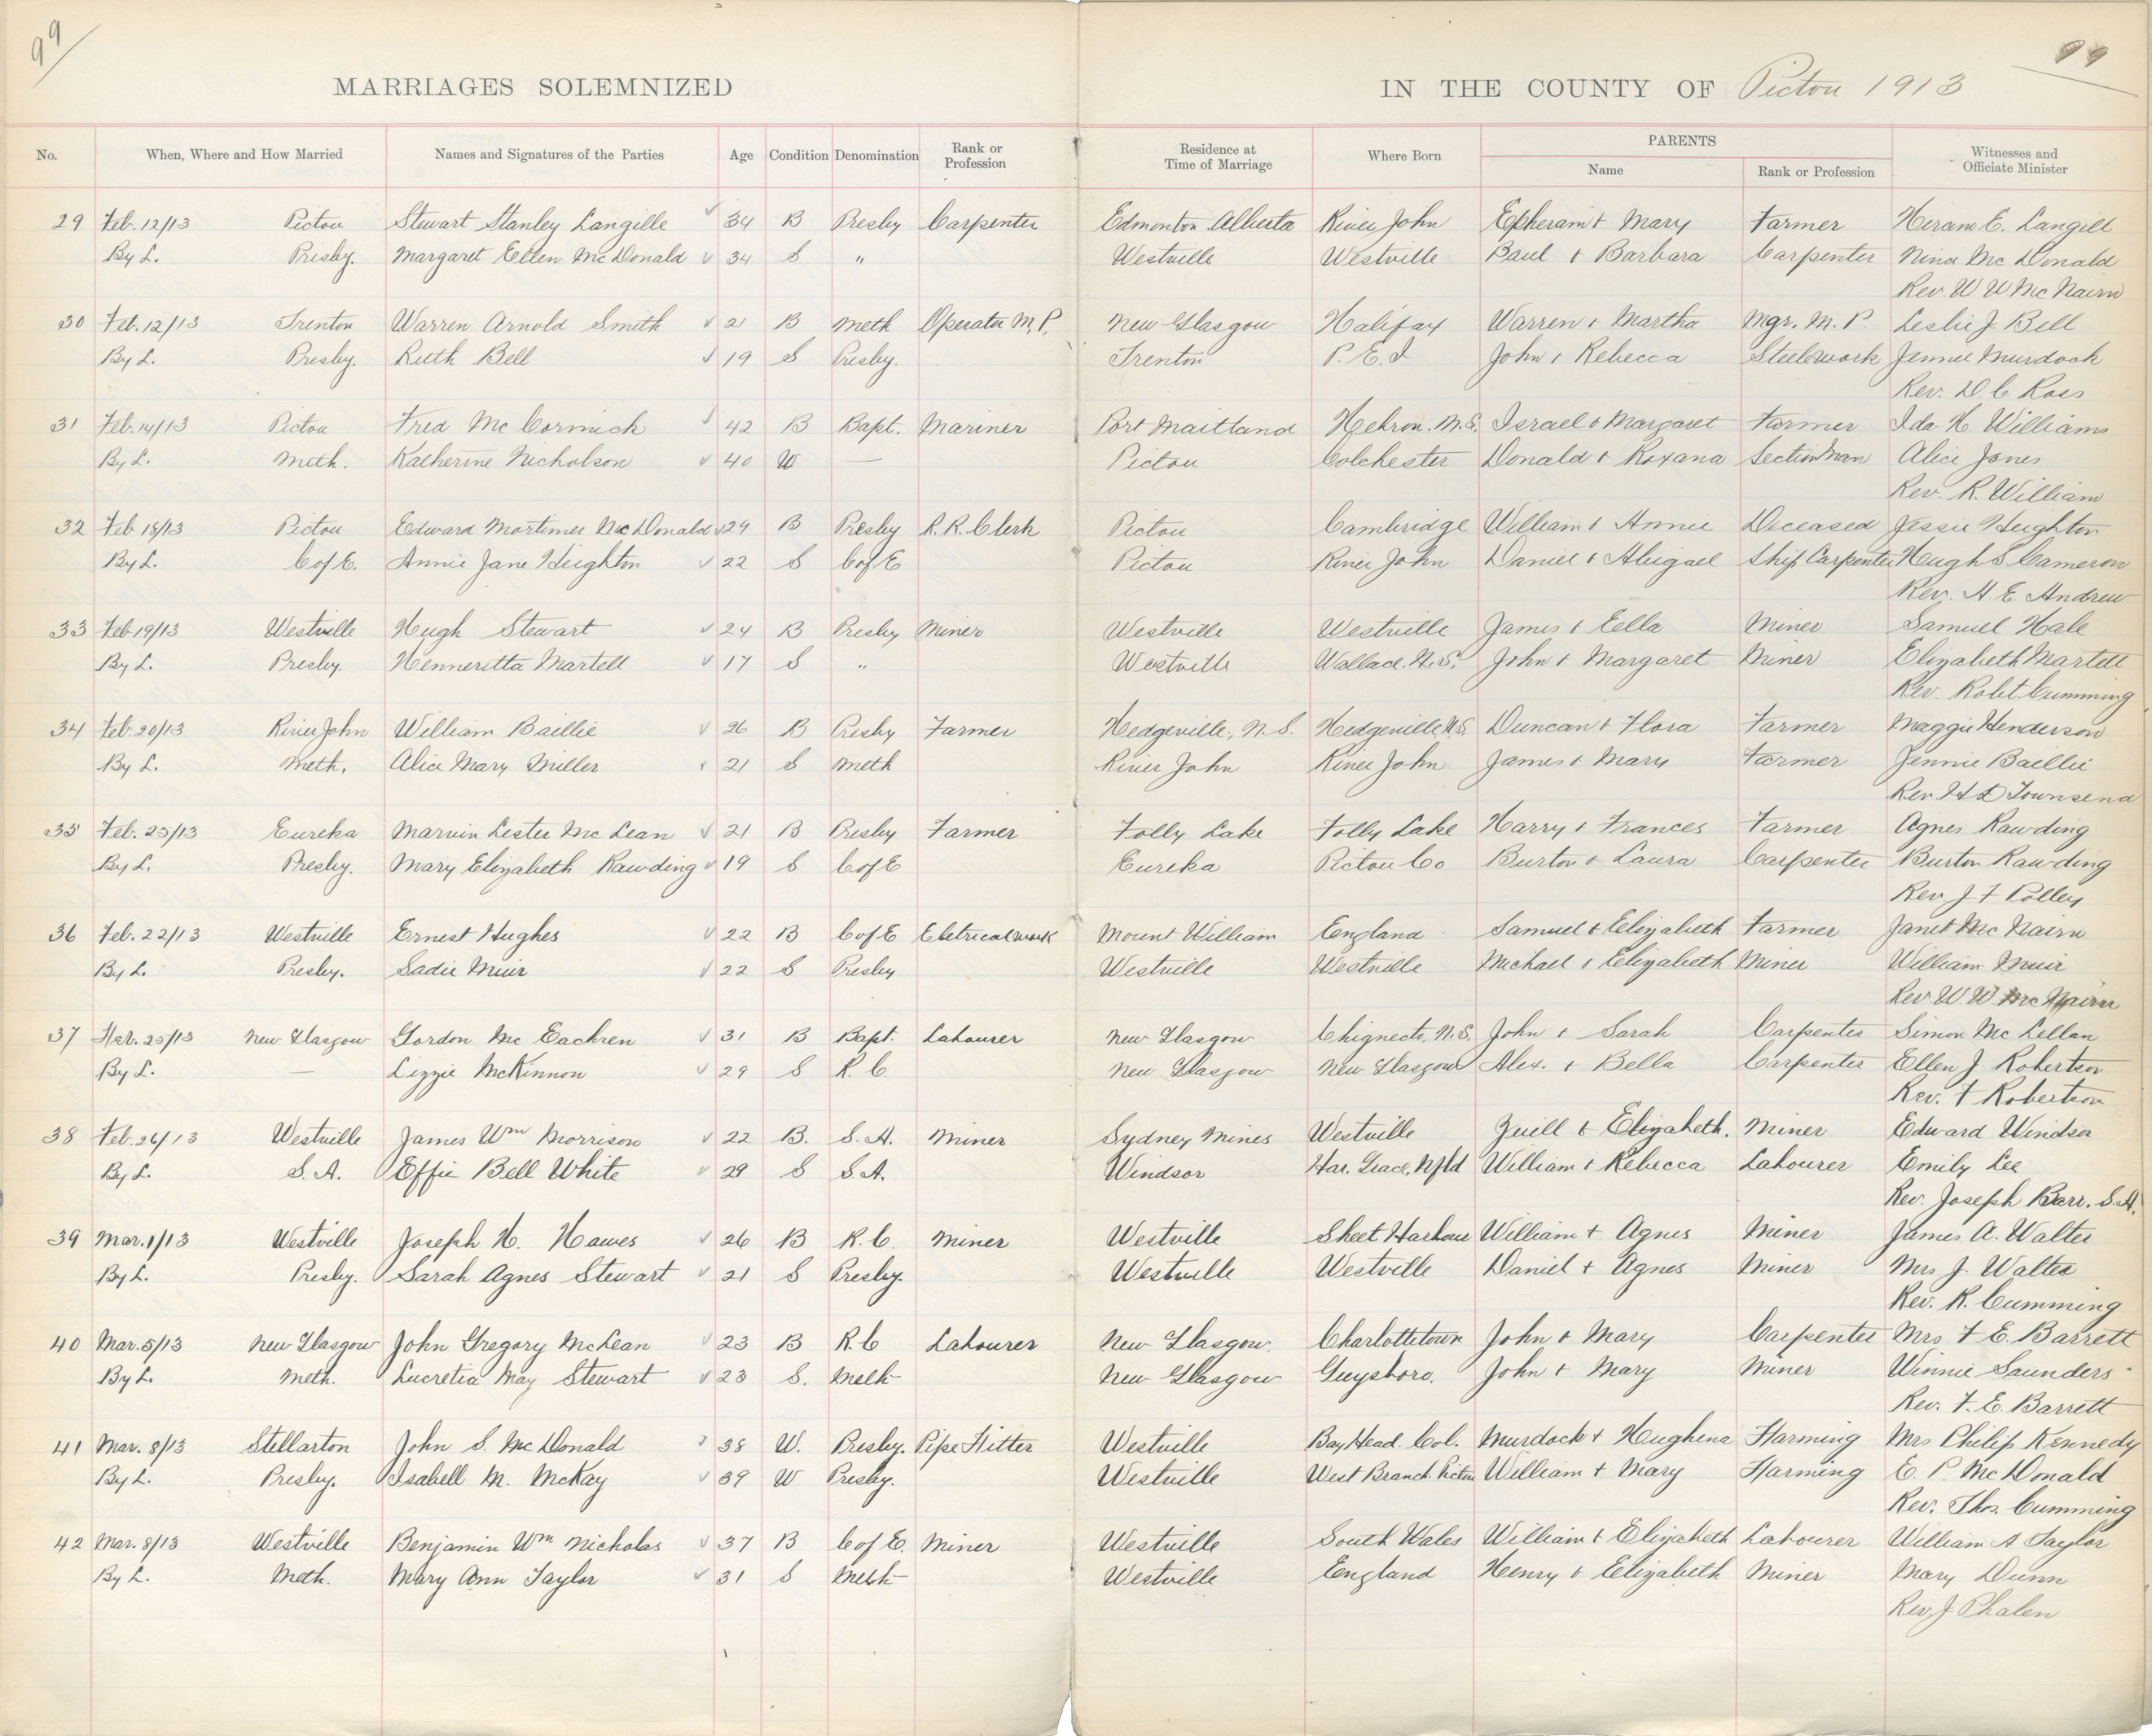 99 99
MARRIAGES SOLEMNIZED IN THE COUNTY OF Pictou 1913
No. When, Where and How Married Names and Signatures of the Parties Age Condition Denomination Rank or Profession Residence at Time of Marriage Where Born PARENTS Name Rank or Profession Witnesses and Officiate Minister
29 Feb. 12/13 Pictou Stewart Stanley Langille 34 B Presby Carpenter Edmonton Alberta River John Epheram + Mary Farmer Heram E. Langill
By L. Presby. Margaret Ellen McDonald 34 S " Westville Westville Paul + Barbara Carpenter Nina McDonald
Rev W W McNairn
30 Feb. 12/13 Trenton Warren Arnold Smith 21 B Meth Operator M.P. New Glasgow Halifax Warren + Martha Mgr. M. P. Leslie J Bell
By L. Presby. Ruth Bell 19 S Presby. Trenton P. E. I John + Rebecca Steelwork Jennie Murdock
Rev. D. C Ross
31 Feb. 14/13 Pictou Fred McCormick 42 B Bapt. Mariner Port Maitland Hebron. N.S. Israel + Margaret Farmer Ida H. Williams
By L. Meth. Katherine Nicholson 40 W — Pictou Colchester Donald + Roxana Section Man Alice Jones
Rev. R. William
32 Feb 18/13 Pictou Edward Mortimer McDonald 29 B Presby R. R. Clerk Pictou Cambridge William + Annie Deceased Jessie Heighton
By L. C of E. Annie Jane Heighton 22 S C of E Pictou River John Daniel + Abigael Ship Carpenter Hugh S Cameron
Rev. H. E Andrew
33 Feb 19/13 Westville Hugh Stewart 24 B Presby Miner Westville Westville James + Eella Miner Samuel Hale
By L. Presby. Henneritta Martell 17 S " Westville Wallace. N.S. John + Margaret Miner Elizabeth Martell
Rev Robt. Cumming
34 Feb. 20/13 River John William Baillie 26 B Presby Farmer Hedgeville, N. S. Hedgeville N.S. Duncan + Flora Farmer Maggie Henderson
By L. Meth. Alice Mary Miller 21 S Meth River John River John James + Mary Farmer Jennie Baillie
Rev. H D Townsend
35 Feb. 25/13 Eureka Marvin Lester McLean 21 B Presby Farmer Folly Lake Folly Lake Harry + Frances Farmer Agnes Rawding
By L. Presby. Mary Elizabeth Rawding 19 S C of E Eureka Pictou Co Burton + Laura Carpenter Burton Rawding
Rev J F Polley
36 Feb. 22/13 Westville Ernest Hughes 22 B C of E Eletrical work Mount William England Samuel + Elizabeth Farmer Janet McNairn
By L. Presby. Sadie Muir 22 S Presby Westville Westville Michael + Elizabeth Miner William Muir
Rev W. W. McNairn
37 Feb. 25/13 New Glasgow Gordon McEachren 31 B Bapt. Labourer New Glasgow Chignecto, N.S. John + Sarah Carpenter Simon McLellan
By L. — Lizzie McKinnon 29 S R. C. New Glasgow New Glasgow Alex. + Bella Carpenter Ellen J. Robertson
Rev. F Robertson
38 Feb. 26/13 Westville James Wm Morrison 22 B. S. A. Miner Sydney Mines Westville Zuill + Elizabeth. Miner Edward Windsor
By L. S. A. Effie Bell White 29 S S. A. Windsor Har. Grace, Nfld William + Rebecca Labourer Emily Lee
Rev. Joseph Barr. S.A.
39 Mar. 1/13 Westville Joseph H. Hawes 26 B R. C. Miner Westville Sheet Harbour William + Agnes Miner James A. Walter
By L. Presby. Sarah Agnes Stewart 21 S Presby. Westville Westville Daniel + Agnes Miner Mrs J. Walter
Rev. R. Cumming
40 Mar. 5/13 New Glasgow John Gregory McLean 23 B R. C Labourer New Glasgow. Charlottetown John + Mary Carpenter Mrs F E. Barrett
By L. Meth. Lucretia May Stewart 23 S. Meth New Glasgow Guysboro. John + Mary Miner Winnie Saunders
Rev. F. E. Barrett
41 Mar. 8/13 Stellarton John S. McDonald 38 W. Presby. Pipe Fitter Westville Bay Head. Col. Murdock + Hughena Farming Mrs Philip Kennedy
By L. Presby. Isabell M. McKay 39 W Presby. Westville West Branch. Pictou William + Mary Farming E. P. McDonald
Rev. Thos. Cumming
42 Mar. 8/13 Westville Benjamin Wm Nicholas 37 B C of E. Miner Westville South Wales William + Elizabeth Labourer William A Taylor
By L. Meth. Mary Ann Taylor 31 S Meth Westville England Henry + Elizabeth Miner Mary Dunn
Rev. J Phalen